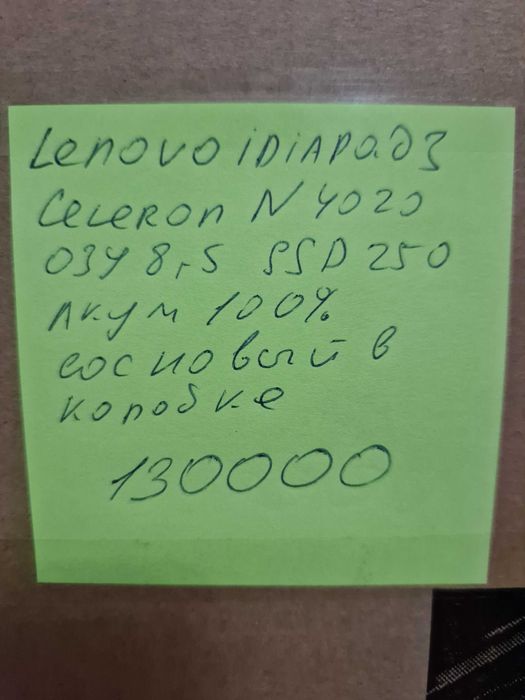 Lenovo iDiAPAД3
CELERON N4020
ОЗУ 8,5 SSD 250
Акум 100%
сосновый в
коробке
130000